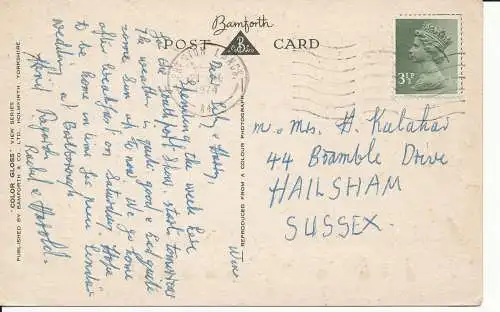 Bamforth
POST CARD
B
3½P
1974
Dear Lily & Harry,
Spending the week here
for the Southport Show, starts tomorrow
The weather is quite good & had quite
some sun up to now. We go home
after breakfast on Saturday. Hope
to be home in time for
wedding at Barlborough
Kind Regards,
Rachel & Harold.
Wed.
M. Mrs. H. Kulahar
44 Bramble Drive
HAILSHAM
SUSSEX.
"COLOR GLOSS" VIEW SERIES
PUBLISHED BY BAMFORTH & CO. LTD. HOLMFIRTH, YORKSHIRE.
REPRODUCED FROM A COLOUR PHOTOGRAPH